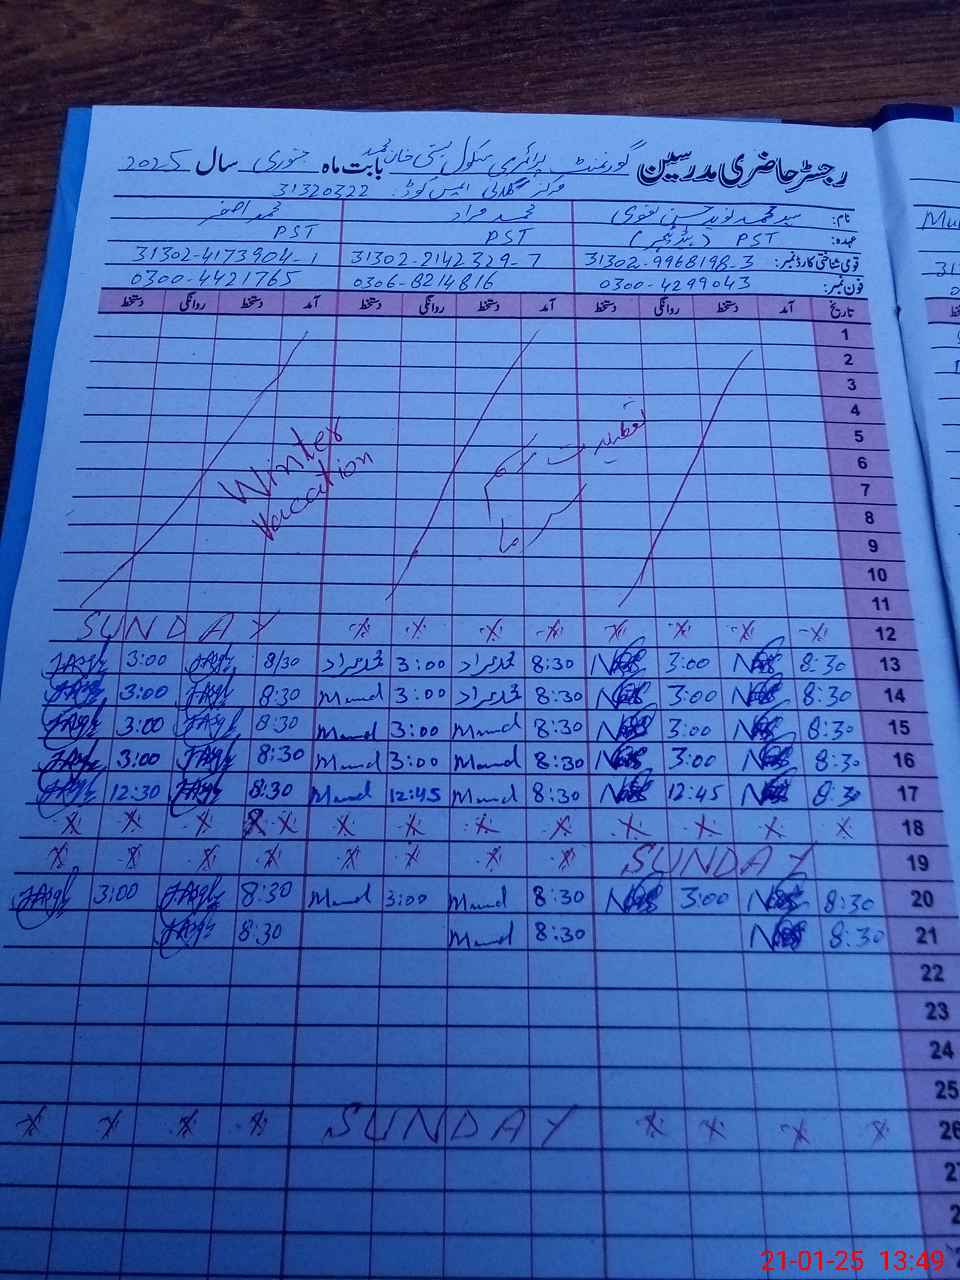 رجسٹر حاضری مدرسین گورنمنٹ پرائمری سکول بستی خان محمد بابت ماہ جنوری سال 2025
مرکز گلابی ایمس کوڈ: 31320322
نام: سید محمد نوید حسین نقوی محمد مراد محمد اصغر
عہدہ: PST (ہیڈ ٹیچر) PST PST
قومی شناختی کارڈ نمبر: 31302-9968198-3 31302-2142329-7 31302-4173904-1
فون نمبر: 0300-4299043 0306-8214816 0300-4421765
تاریخ آمد دستخط روانگی دستخط آمد دستخط روانگی دستخط آمد دستخط روانگی دستخط
1
2
3
4
5
6
7
8
9
10
11
تعطیلات موسم سرما
Winter Vacation
12 SUNDAY
13 8:30 3:00 8:30 محمد مراد 3:00 محمد مراد 8/30 3:00
14 8:30 3:00 8:30 محمد مراد 3:00 Murad 8:30 3:00
15 8:30 3:00 8:30 Murad 3:00 Murad 8:30 3:00
16 8:30 3:00 8:30 Murad 3:00 Murad 8:30 3:00
17 8:30 12:45 8:30 Murad 12:45 Murad 8:30 12:30
18
19 SUNDAY
20 8:30 3:00 8:30 Murad 3:00 Murad 8:30 3:00
21 8:30 8:30 Murad 8:30
22
23
24
25
26 SUNDAY
21-01-25 13:49